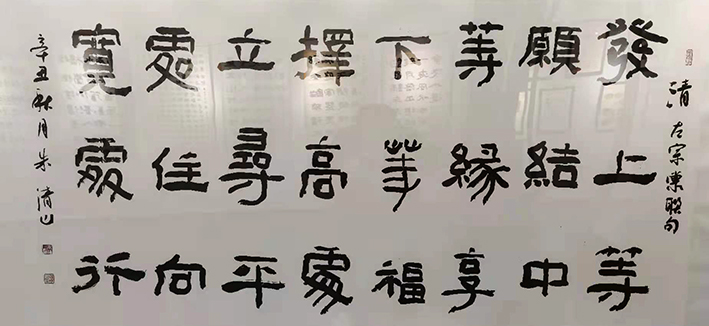 清 左宗棠聯句
發上等
願結中
等緣享
下等福
擇高處
立尋平
處住向
寬處行
辛丑秋月朱山